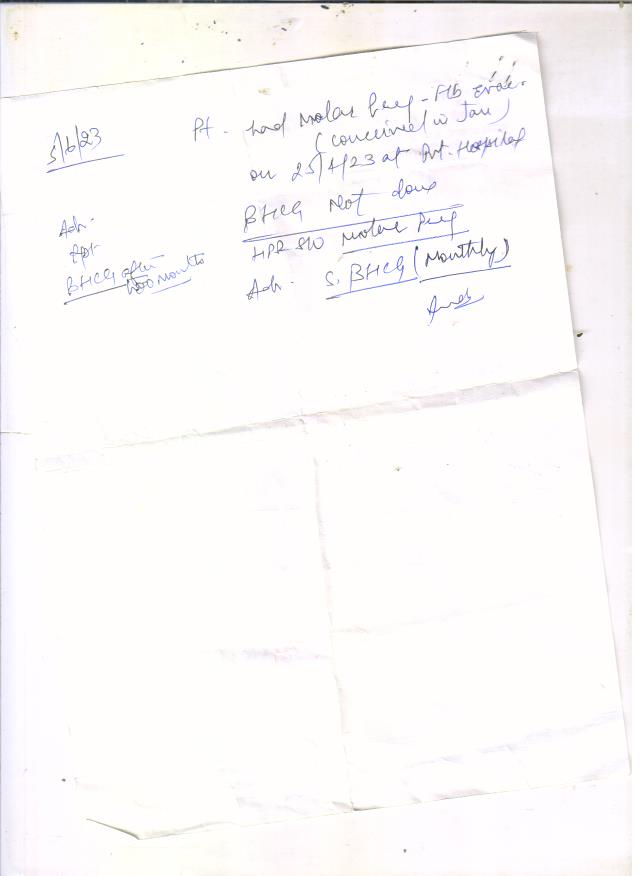 5/6/23
Pt. had Molar Preg - F/b Evac.
(conceived in Jan)
on 25/4/23 at Pvt. Hospital
BHCG Not done
HPR S/O Molar Preg
Adv. S. BHCG (Monthly)
Adv.
Rpt
BHCG after
two months